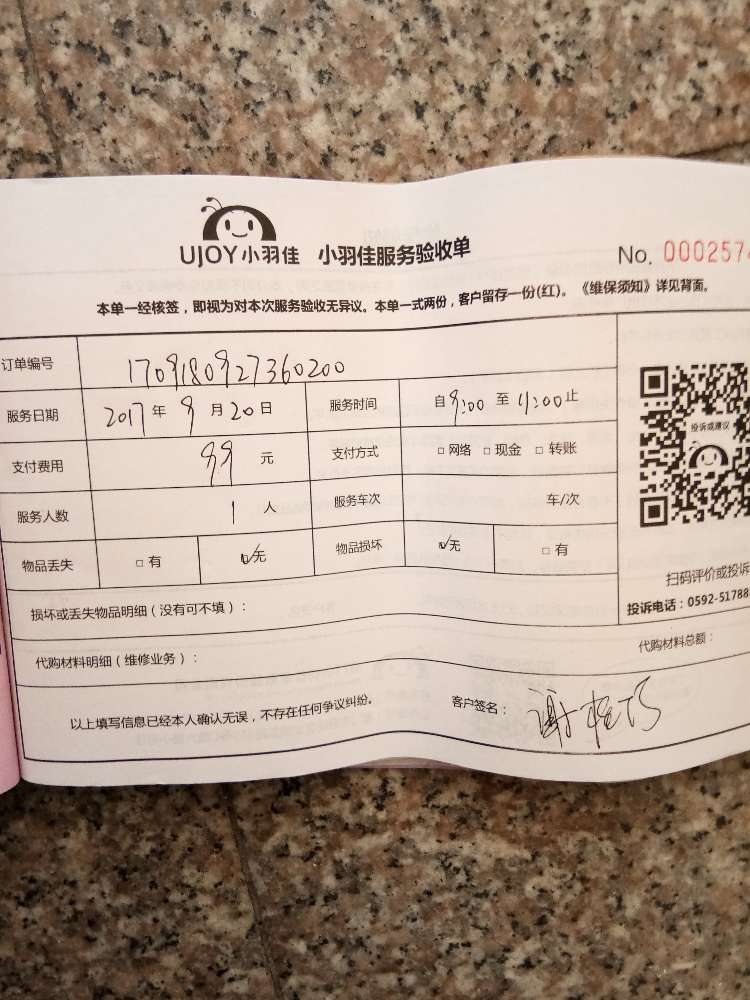 UJOY小羽佳 小羽佳服务验收单 No. 0002574
本单一经核签，即视为对本次服务验收无异议。本单一式两份，客户留存一份(红)。《维保须知》详见背面。
订单编号 1709180927360200
服务日期 2017年9月20日 服务时间 自9:00至11:00止
投诉或建议
支付费用 99元 支付方式 □网络 □现金 □转账
服务人数 1人 服务车次 车/次
物品丢失 □有 ☑无 物品损坏 ☑无 □有
扫码评价或投诉
投诉电话：0592-51788
损坏或丢失物品明细（没有可不填）：
代购材料明细（维修业务）： 代购材料总额：
以上填写信息已经本人确认无误，不存在任何争议纠纷。 客户签名：谢